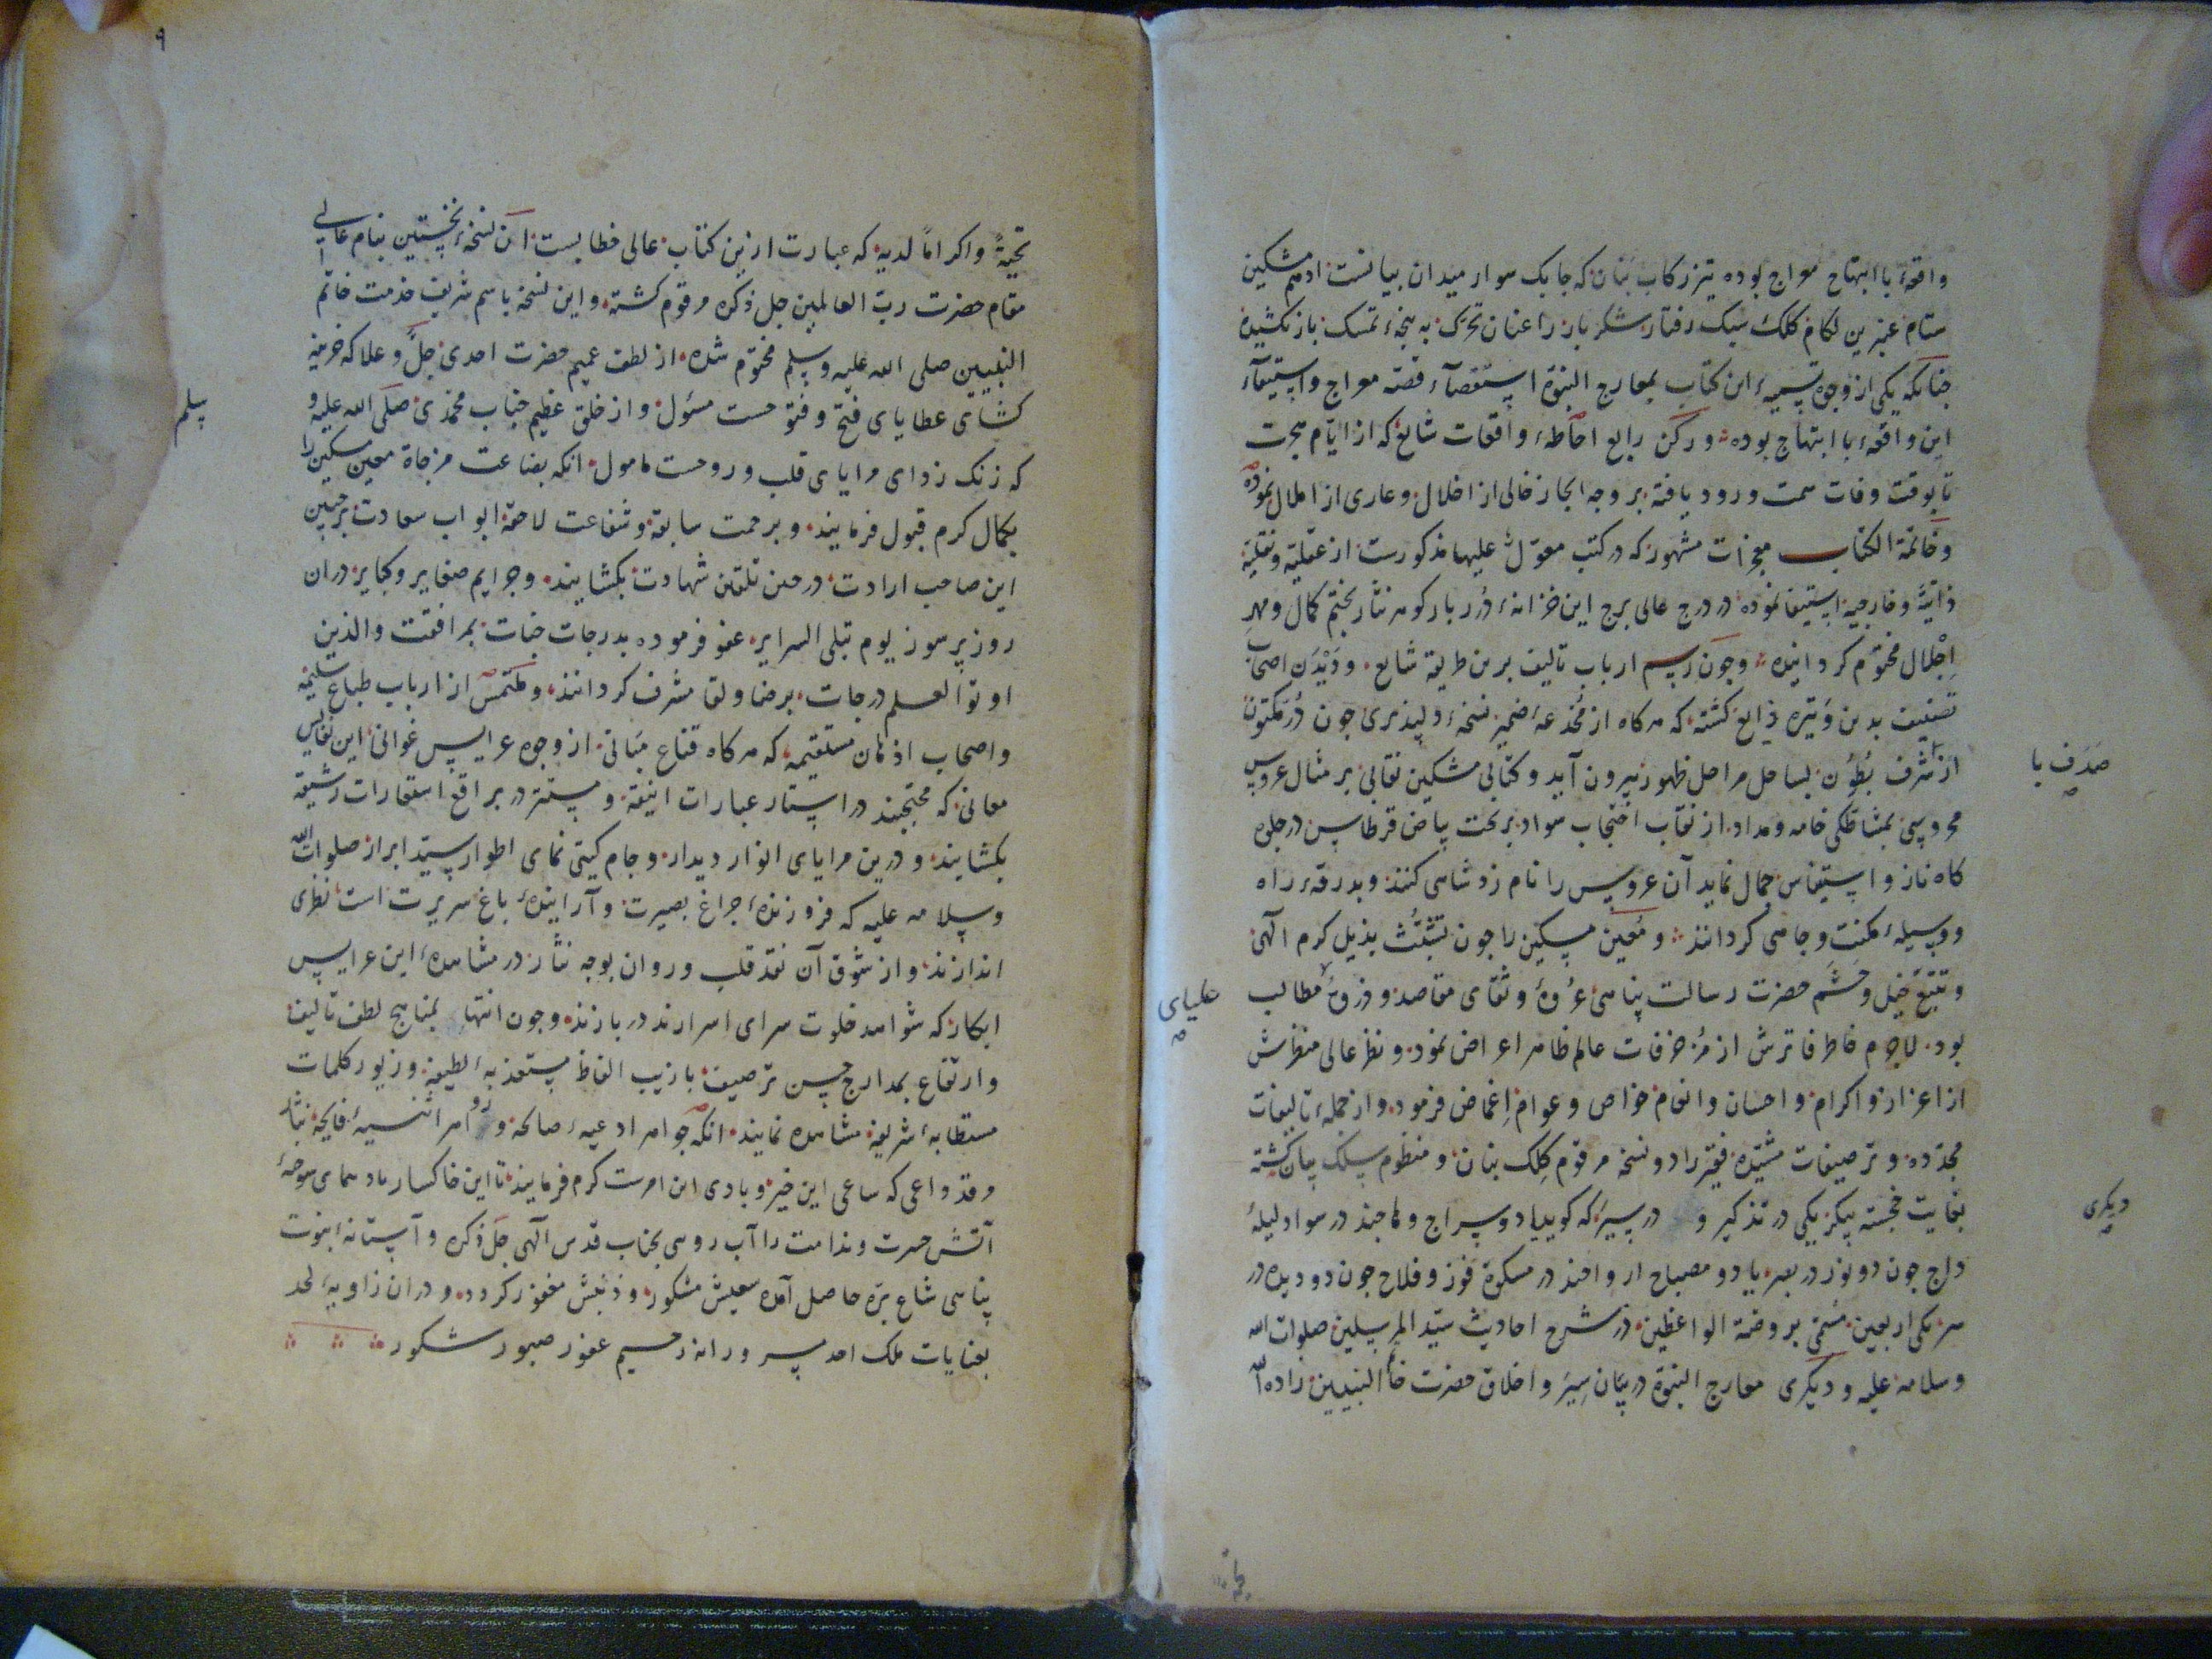 واقعهٔ با ابتهاج معراج بوده تیز رکاب بنان که جابک سوار میدان بیانست ادهم مشکین
ستام عنبرین لکام کلک سبک رفتار شکر بار را عنان تحرک به پنجهٔ تمسک باز نکشیده
جنانکه یکی از وجوه تسمیهٔ این کتاب بمعارج النبوة استقصآء قصه معراج و استیفآء
این واقعهٔ با ابتهاج بوده و رکن رابع احاطهٔ واقعات شایع که از ایام هجرت
تا بوقت وفات سمت ورود یافته بر وجه ایجاز خالی از اخلال و عاری از املال نموده
و خاتمة الکتاب معجزات مشهور که در کتب معوّل علیها مذکورست از عقلیّه و نقلیّه
ذاتیّه و خارجیه استیفا نموده در درج عالی برج این خزانهٔ دُرر بار کوهر نثار بختم کمال و مهرِ
اِجلال مختوم کردانیده و جون رسم ارباب تالیف برین طریقه شایع و دَیْدَن اصحاب
تصنیف بدین وَتیره ذایع کشته که هرکاه از مُخدعهٔ ضمیر نسخهٔ دلپذیری جون دُرّ مکنون
از شرف بُطون بساحل مراحل ظهور بیرون آید و کتابی مشکین نقابی بر مثال عروس
محروسی بمشاطکی خامه و مداد از نقاب احتجاب سواد بر تخت بیاض قرطاس در جلوه
کاه ناز و استیناس جمال نماید آن عروس را نام زد شاهی کنند و بدرقهٔ راه
و وسیلهٔ مکنت و جاهی کردانند و مُعین مسکین را جون تشبّث بذیل کرم الهی
و تتبّع خیل و حَشَم حضرت رسالت پناهی عُروهٔ وثقای مقاصد و ذروهٔ مطالب
بود لاجرم خاطر فاترش از مُزخرفات عالم ظاهر اعراض نمود و نظر عالی منظرش
از اعزاز و اکرام و احسان و انعام خواص و عوام اِغماض فرمود و از جملهٔ تالیفات
مجدّده و ترصیفات مشیّده فقیر را دو نسخه مرقوم کِلک بنان و منظوم سِلک بیان کشته
بغایت خجسته پیکر یکی در تذکیر و در سِیَر که کوییا دو سراج وهاجند در سواد لیلهٔ
داج جون دو نور در بصر یا دو مصباح ارواحند در مشکوة فوز و فلاح جون دو دیده در
سر یکی اربعین مُسَمّی بروضة الواعظین در شرح احادیث سیّد المرسلین صلوات الله
و سلامه علیه و دیکری معارج النبوة در بیان سِیَر و اخلاق حضرت خاتم النبیین زاده الله
صَدَفِ با
علیای
دیکری
تحیة
۹
تحیةً و اکراماً لدیه که عبارت ازین کتاب عالی خطابست آن نسخهٔ نخستین بنام عالی
مقام حضرت ربّ العالمین جل ذکره مرقوم کشته و این نسخه باسم شریف خدمت خاتم
النبیین صلی الله علیه و سلم مختوم شده از لطف عمیم حضرت احدی جلّ و علا که خزینه
کشای عطایای فتح و فتوحست مسؤل و از خلق عظیم جناب محمدی صلی الله علیه و
سلم
که زنک زدای مرایای قلب و روحست مامول انکه بضاعت مزجاة معین مسکین را
بکمال کرم قبول فرمایند و برحمت سابقه و شفاعت لاحقه ابواب سعادت بر جبین
این صاحب ارادت در حین تلقین شهادت بکشایند و جرایم صغایر و کبایر در ان
روز پرسوز یوم تبلی السرایر عفو فرموده بدرجات جنات بمرافقت والذین
اوتوا العلم درجات برضا و لقا مشرف کردانند و ملتمس از ارباب طباع سلیمه
و اصحاب اذهان مستقیمه که هرکاه قناع مَبانی از وجوه عرایس غوانی این نفایس
معانی که محتجبند در استار عبارات انیقه و مستتر در براقع استعارات رشیقه
بکشایند و درین مرایای انوار دیدار و جام کیتی نمای اطوار سیّد ابرار صلوات الله
و سلامه علیه که فروزندهٔ جراغ بصیرت و آرایندهٔ باغ سریرت است نظری
اندازند و از شوق آن نقد قلب و روان بوجه نثار در مشاهدهٔ این عرایس
ابکار که شواهد خلوت سرای اسرارند دربازند و جون انتها بمناهج لطف تالیف
و ارتقاع بمدارج حسن ترصیف بازیب الفاظ مستعذبهٔ لطیفه و زیور کلمات
مستطابهٔ شریفه مشاهده نمایند انکه جواهر ادعیهٔ صالحه و زواهر اثنیهٔ فایحه نثار
وقد واعی که ساعی این خیر و بادی این امرست کرم فرمایند تا این خاکسار باد سمای سوخهٔ
آتش حسرت و ندامت را آب روی بجناب قدس آلهی جل ذکره و آستانه نبوت
پناهی شاع برّه حاصل آمده سعیش مشکور و ذنبش مغفور کردد و در ان زاویهٔ لحد
بعنایات ملک احد مسرور انه رحیم غفور صبور شکور